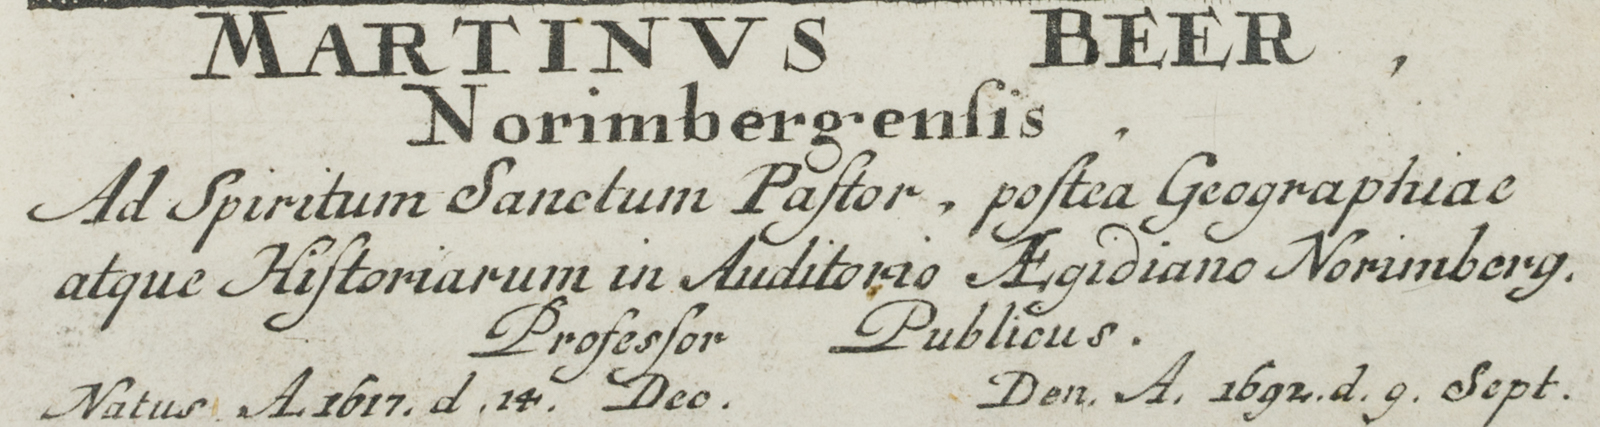 MARTINVS BEER,
Norimbergenſis,
Ad Spiritum Sanctum Paſtor, poſtea Geographiae
atque Hiſtoriarum in Auditorio Ægidiano Norimberg.
Profesſor Publicus.
Natus A. 1617. d. 14. Dec. Den. A. 1692. d. 9. Sept.